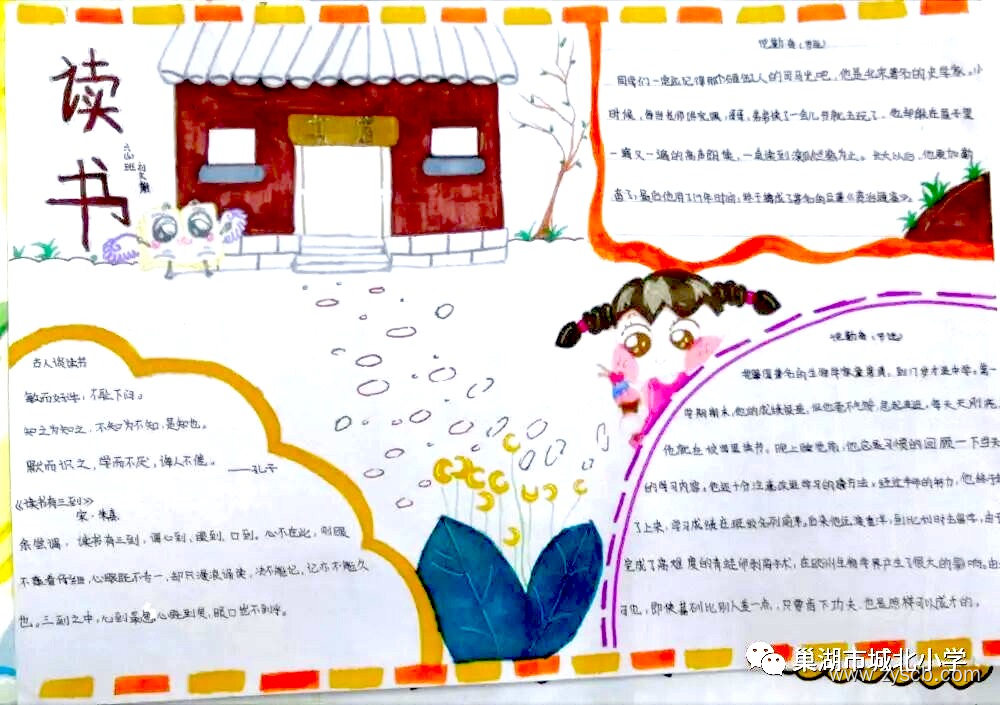 读书
六(4)班
说勤奋(节选)
同学们一定还记得那个砸缸救人的司马光吧,他是北宋著名的史学家。小
时候,每当老师讲完课,哥哥、弟弟读了一会儿书就去玩了,他却躲在屋子里
一遍又一遍的高声朗读,一直读到滚瓜烂熟为止。长大以后,他更加勤
奋了,最后他用了19年时间,终于编成了著名的巨著《资治通鉴》。
古人谈读书
敏而好学,不耻下问。
知之为知之,不知为不知,是知也。
默而识之,学而不厌,诲人不倦。
——孔子
《读书有三到》
宋·朱熹
余尝谓,读书有三到,谓心到、眼到、口到。心不在此,则眼
不看仔细,心眼既不专一,却只漫浪诵读,决不能记,记亦不能久
也。三到之中,心到最急,心既到矣,眼口岂不到乎。
说勤奋(节选)
我国著名的生物学家童第周,到17岁才进中学。第一
学期期末,他的成绩很差,但他毫不气馁,急起直追,每天天刚亮,
他就在校园里读书。晚上睡觉前,他总是习惯的回顾一下当天
的学习内容,他还十分注意改进学习的方法。经过半年的努力,他终于赶
了上来,学习成绩在班级名列前茅。后来他远渡重洋,到比利时去留学,由于
完成了高难度的青蛙卵剥离手术,在欧洲生物学界产生了很大的影响。由
可见,即使基础比别人差一点,只要肯下功夫,也是照样可以成才的。
巢湖市城北小学
www.zyscb.com